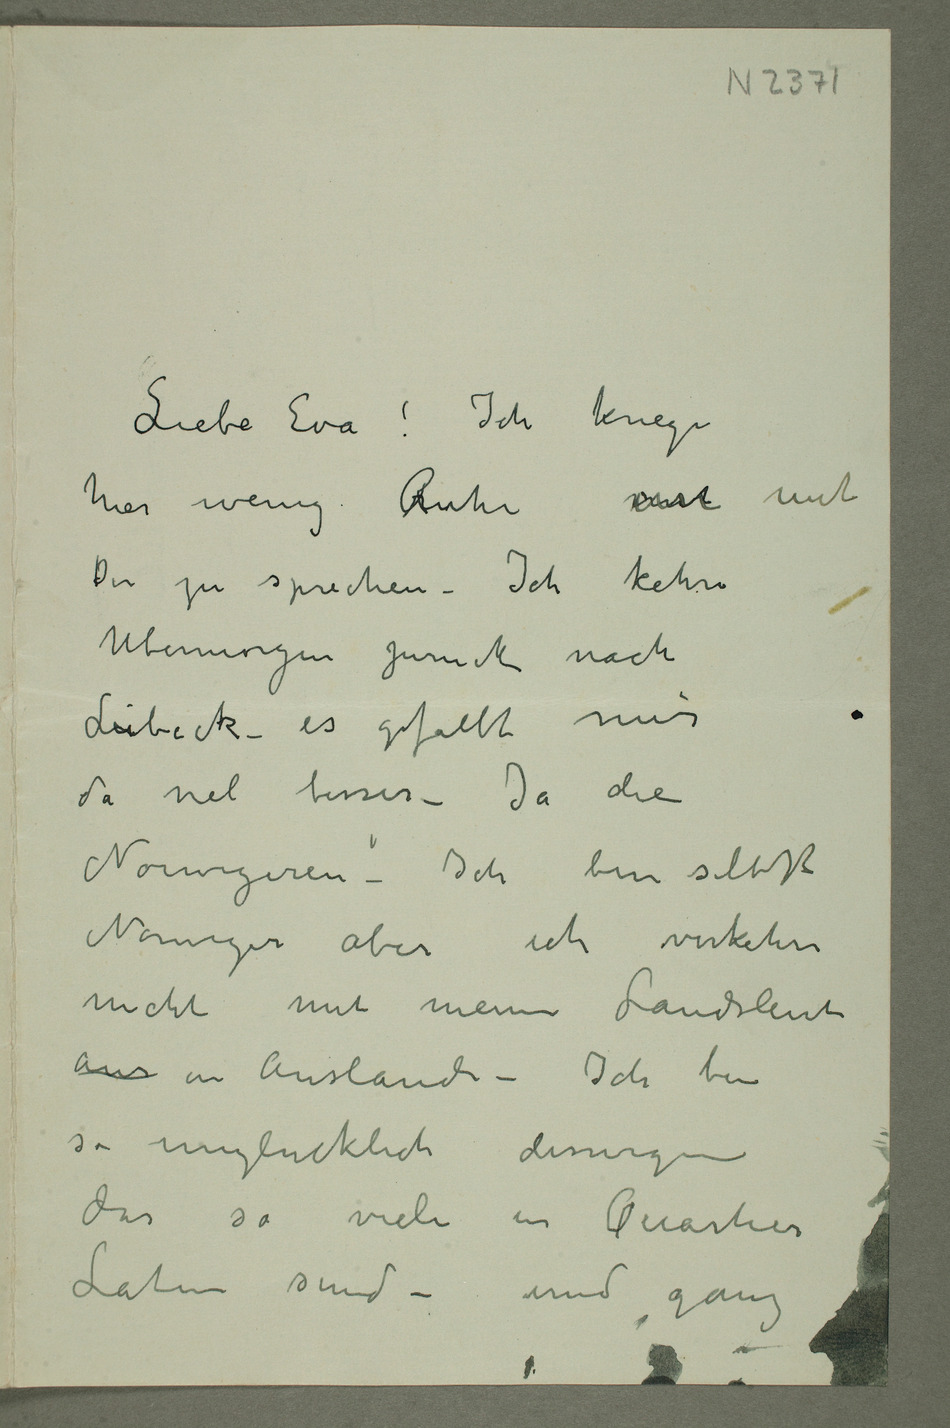 N 2371
Liebe Eva! Ich kriege
hier wenig Ruhe mit
Dir zu sprechen – Ich kehre
Übermorgen zurück nach
Lübeck – es gefällt mir
da viel besser – Ja die
Norwegeren – Ich bin selbst
Norweger aber ich verkehre
nicht mit meine Landsleute
aus in Auslande – Ich bin
so unglücklich desswegen
das so viele in Quartier
Latin sind – und ganz